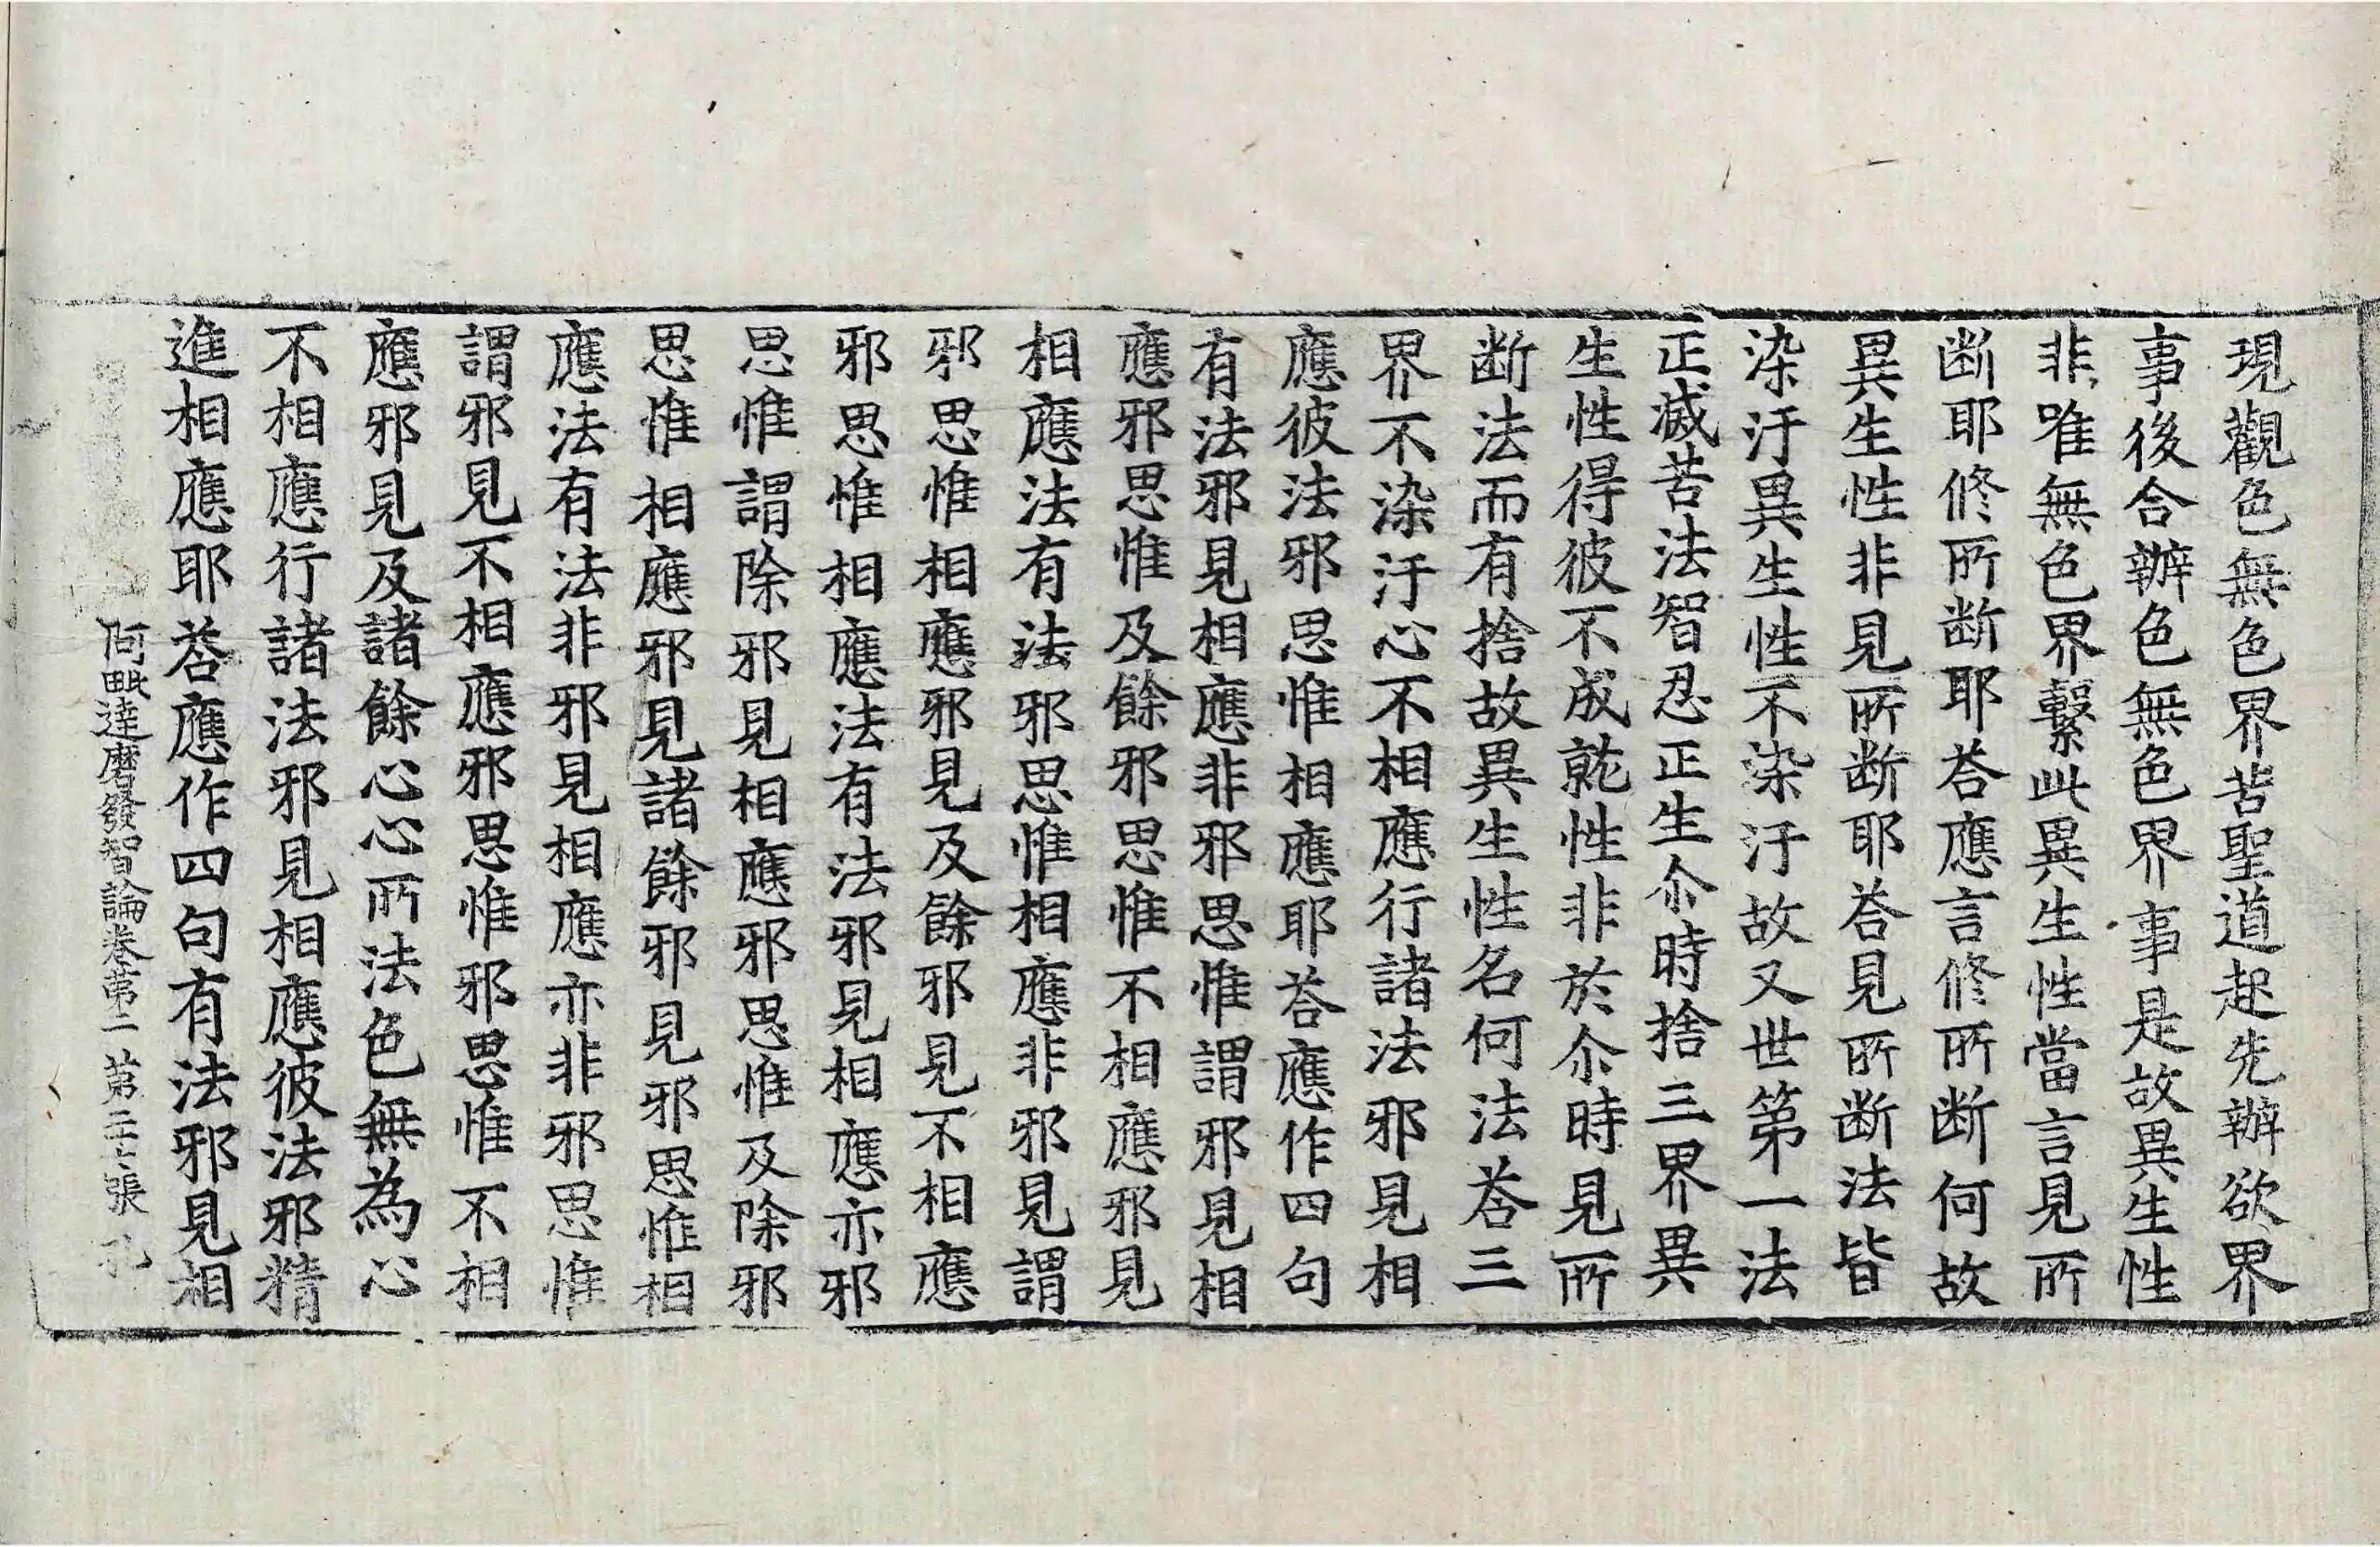 現觀色無色界苦聖道起先辦欲界
事後合辦色無色界事是故異生性
非唯無色界繫此異生性當言見所
断耶修所断耶荅應言修所断何故
異生性非見所断耶荅見所断法皆
染汙異生性不染汙故又世第一法
正滅苦法智忍正生尒時捨三界異
生性得彼不成就性非於尒時見所
断法而有捨故異生性名何法荅三
界不染汙心不相應行諸法邪見相
應彼法邪思惟相應耶荅應作四句
有法邪見相應非邪思惟謂邪見相
應邪思惟及餘邪思惟不相應邪見
相應法有法邪思惟相應非邪見謂
邪思惟相應邪見及餘邪見不相應
邪思惟相應法有法邪見相應亦邪
思惟謂除邪見相應邪思惟及除邪
思惟相應邪見諸餘邪見邪思惟相
應法有法非邪見相應亦非邪思惟
謂邪見不相應邪思惟邪思惟不相
應邪見及諸餘心心所法色無為心
不相應行諸法邪見相應彼法邪精
進相應耶荅應作四句有法邪見相
阿毗達磨發智論卷第二 第二十七張 孔